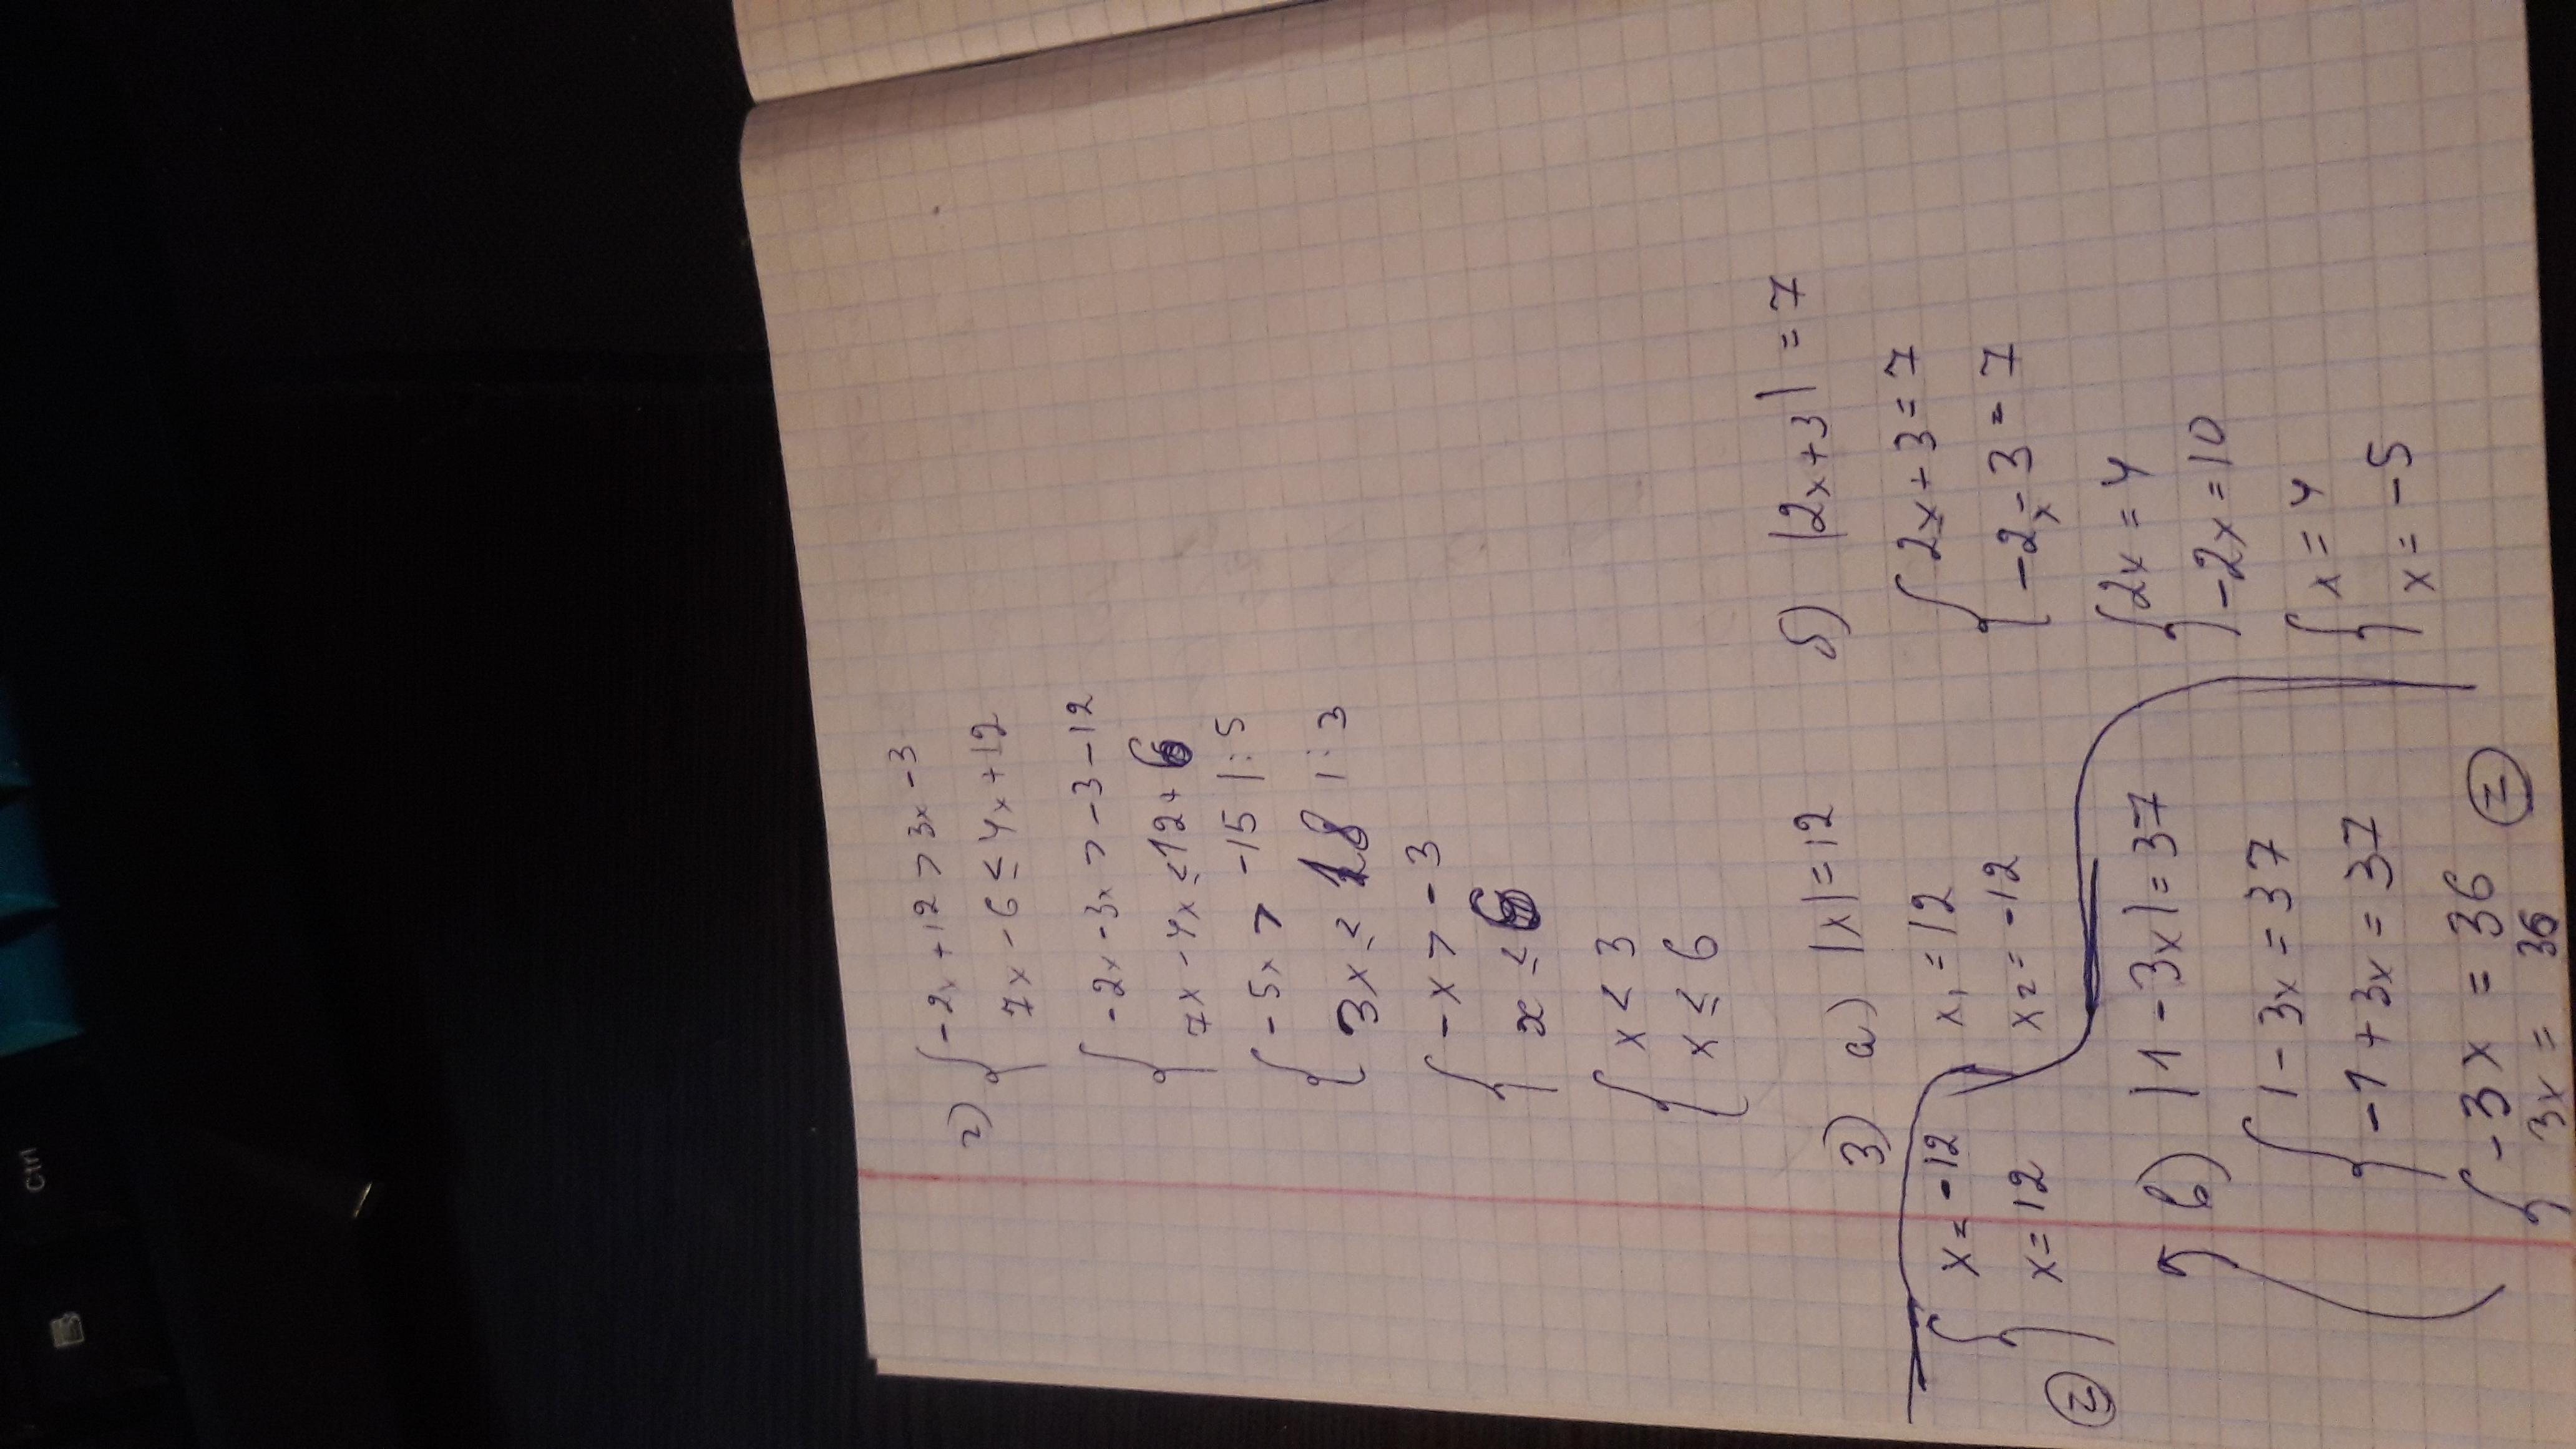 Ctrl
г) { -2x + 12 > 3x - 3
7x - 6 ≤ 4x + 12
{ -2x - 3x > -3 - 12
7x - 4x ≤ 12 + 6
{ -5x > -15 |:5
3x ≤ 18 |:3
{ -x > -3
x ≤ 6
{ x < 3
x ≤ 6
3) а) |x| = 12
x₁ = 12
x₂ = -12
б) |2x + 3| = 7
{ 2x + 3 = 7
-2x - 3 = 7
{ 2x = 4
-2x = 10
{ x = 4
x = -5
в) |1 - 3x| = 37
{ 1 - 3x = 37
-1 + 3x = 37
{ -3x = 36
3x = 36
{ x = -12
x = 12